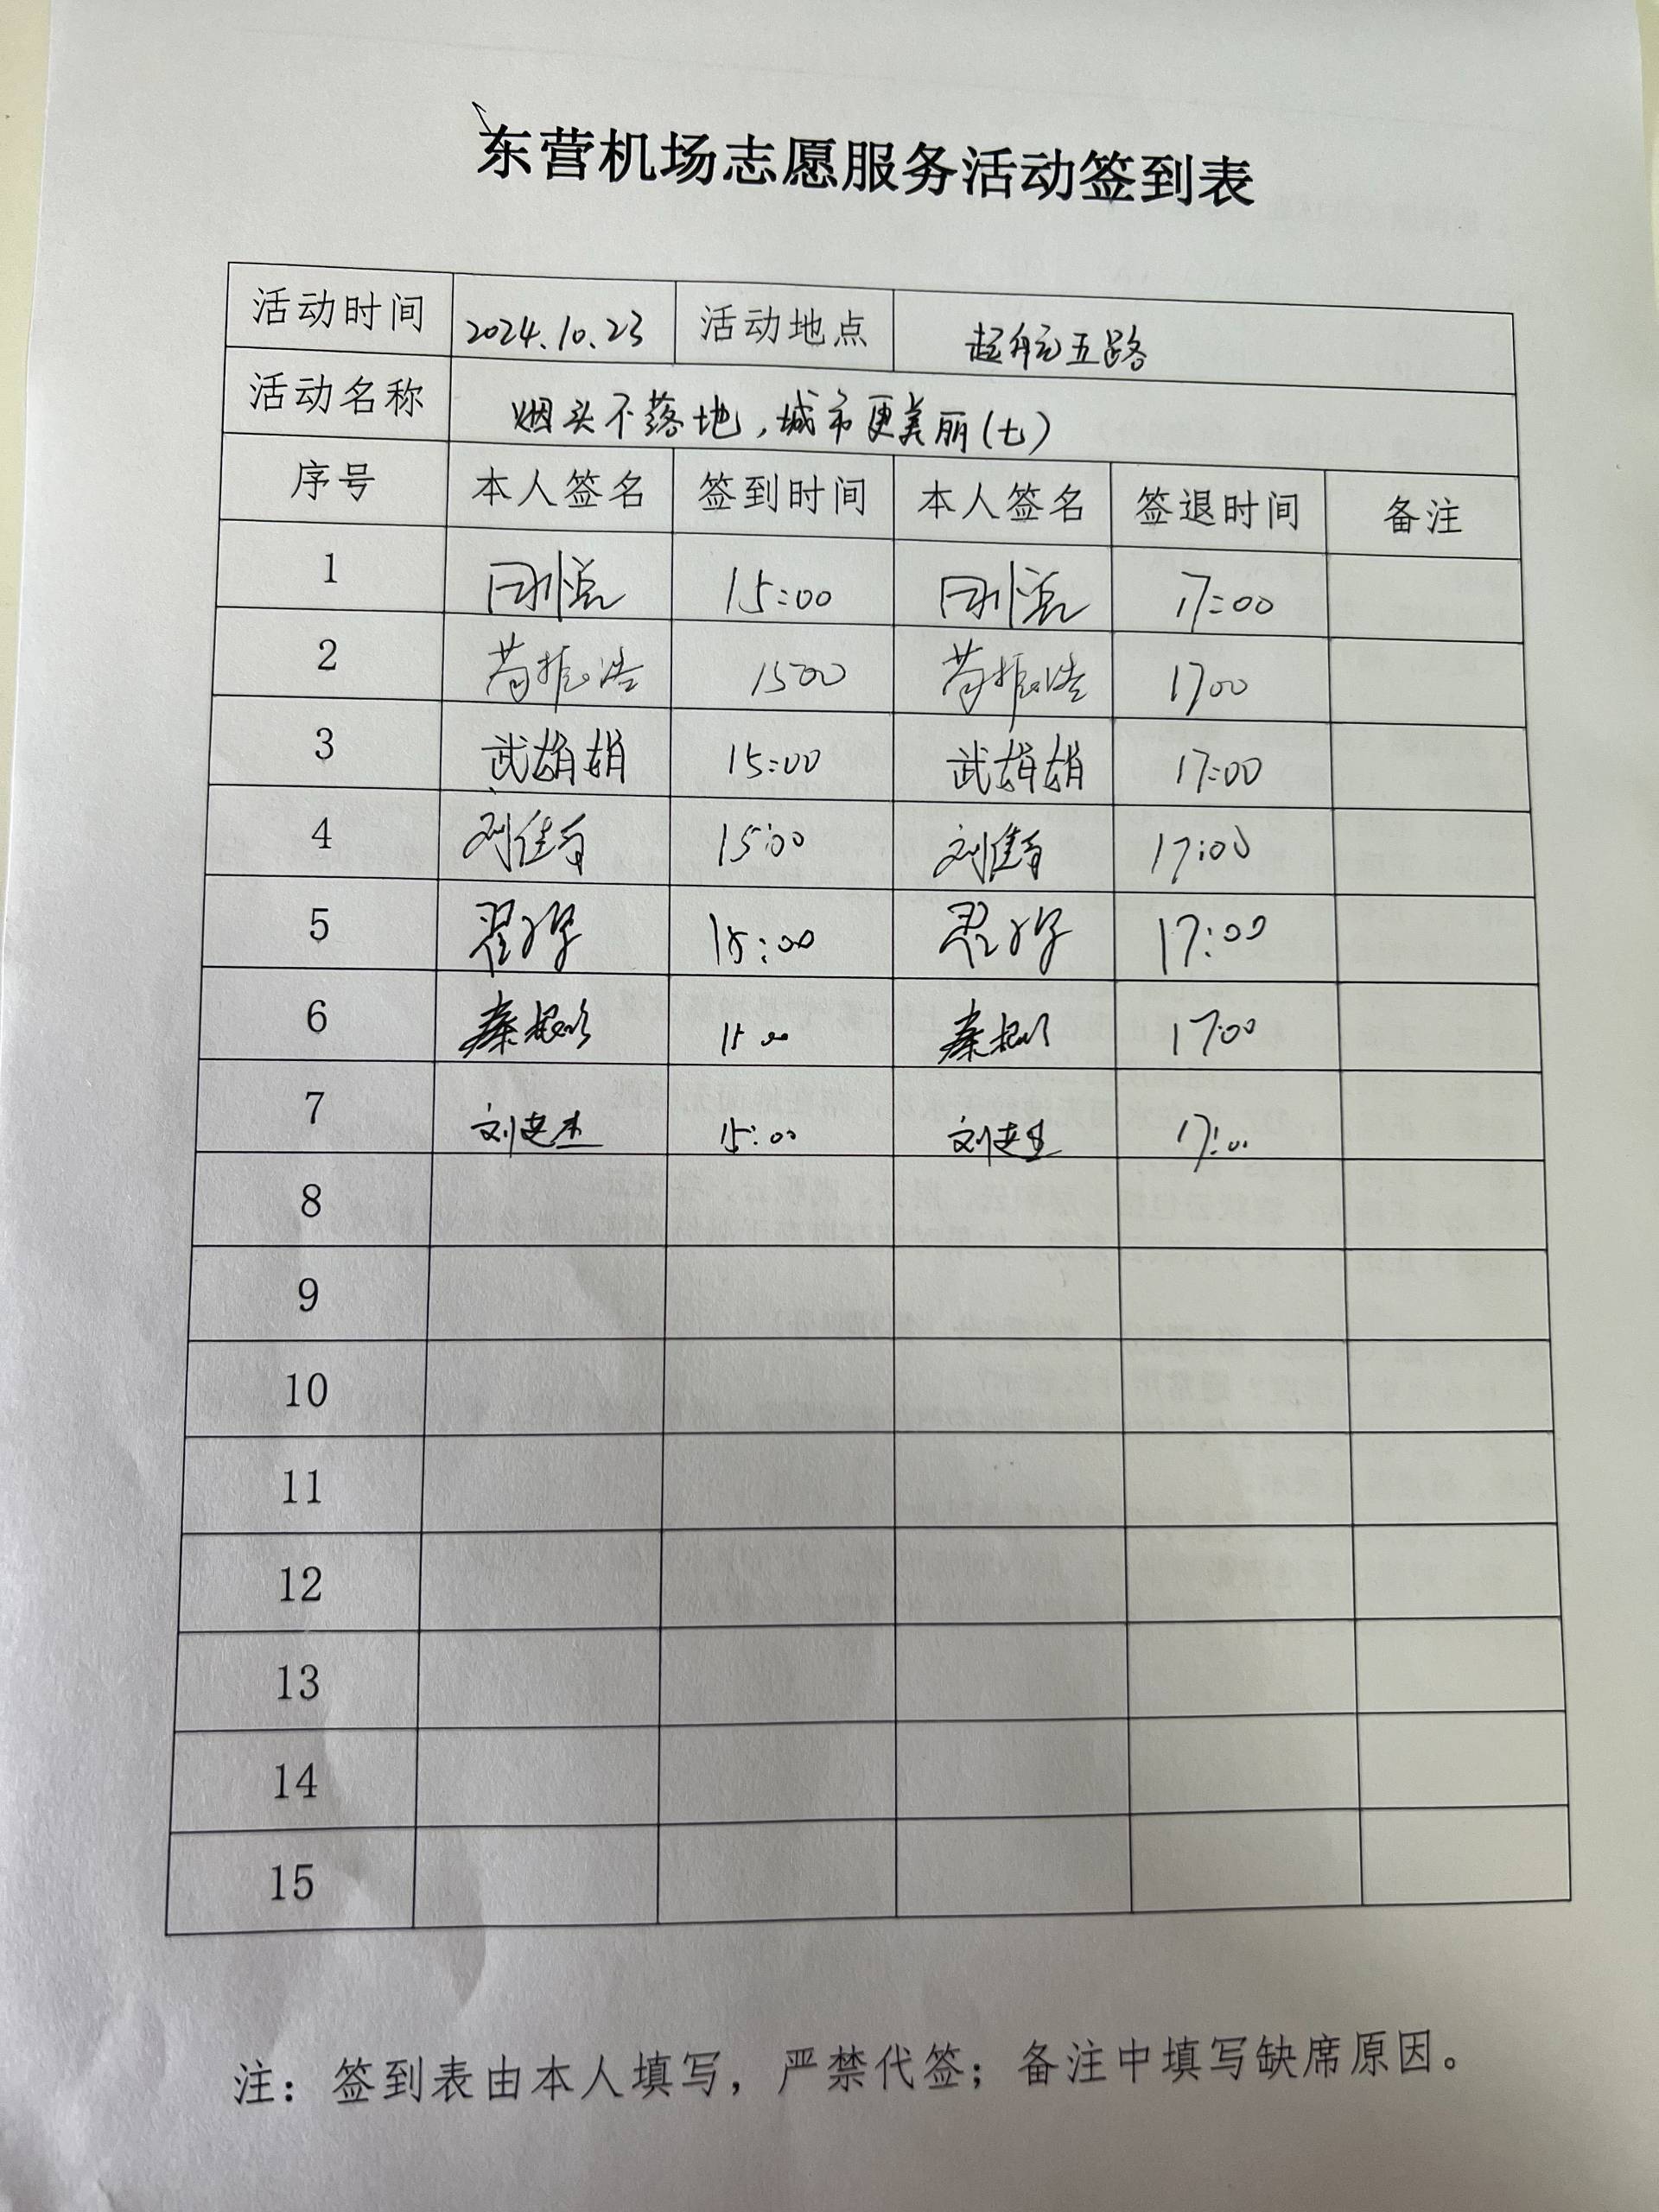 东营机场志愿服务活动签到表
活动时间 2024.10.23 活动地点 起航五路
活动名称 烟头不落地,城市更美丽(七)
序号 本人签名 签到时间 本人签名 签退时间 备注
1 15:00 17:00
2 苟振浩 1500 苟振浩 1700
3 武娟娟 15:00 武娟娟 17:00
4 15:00 17:00
5 15:00 17:00
6 15:00 17:00
7 15:00 17:00
8
9
10
11
12
13
14
15
注：签到表由本人填写，严禁代签；备注中填写缺席原因。